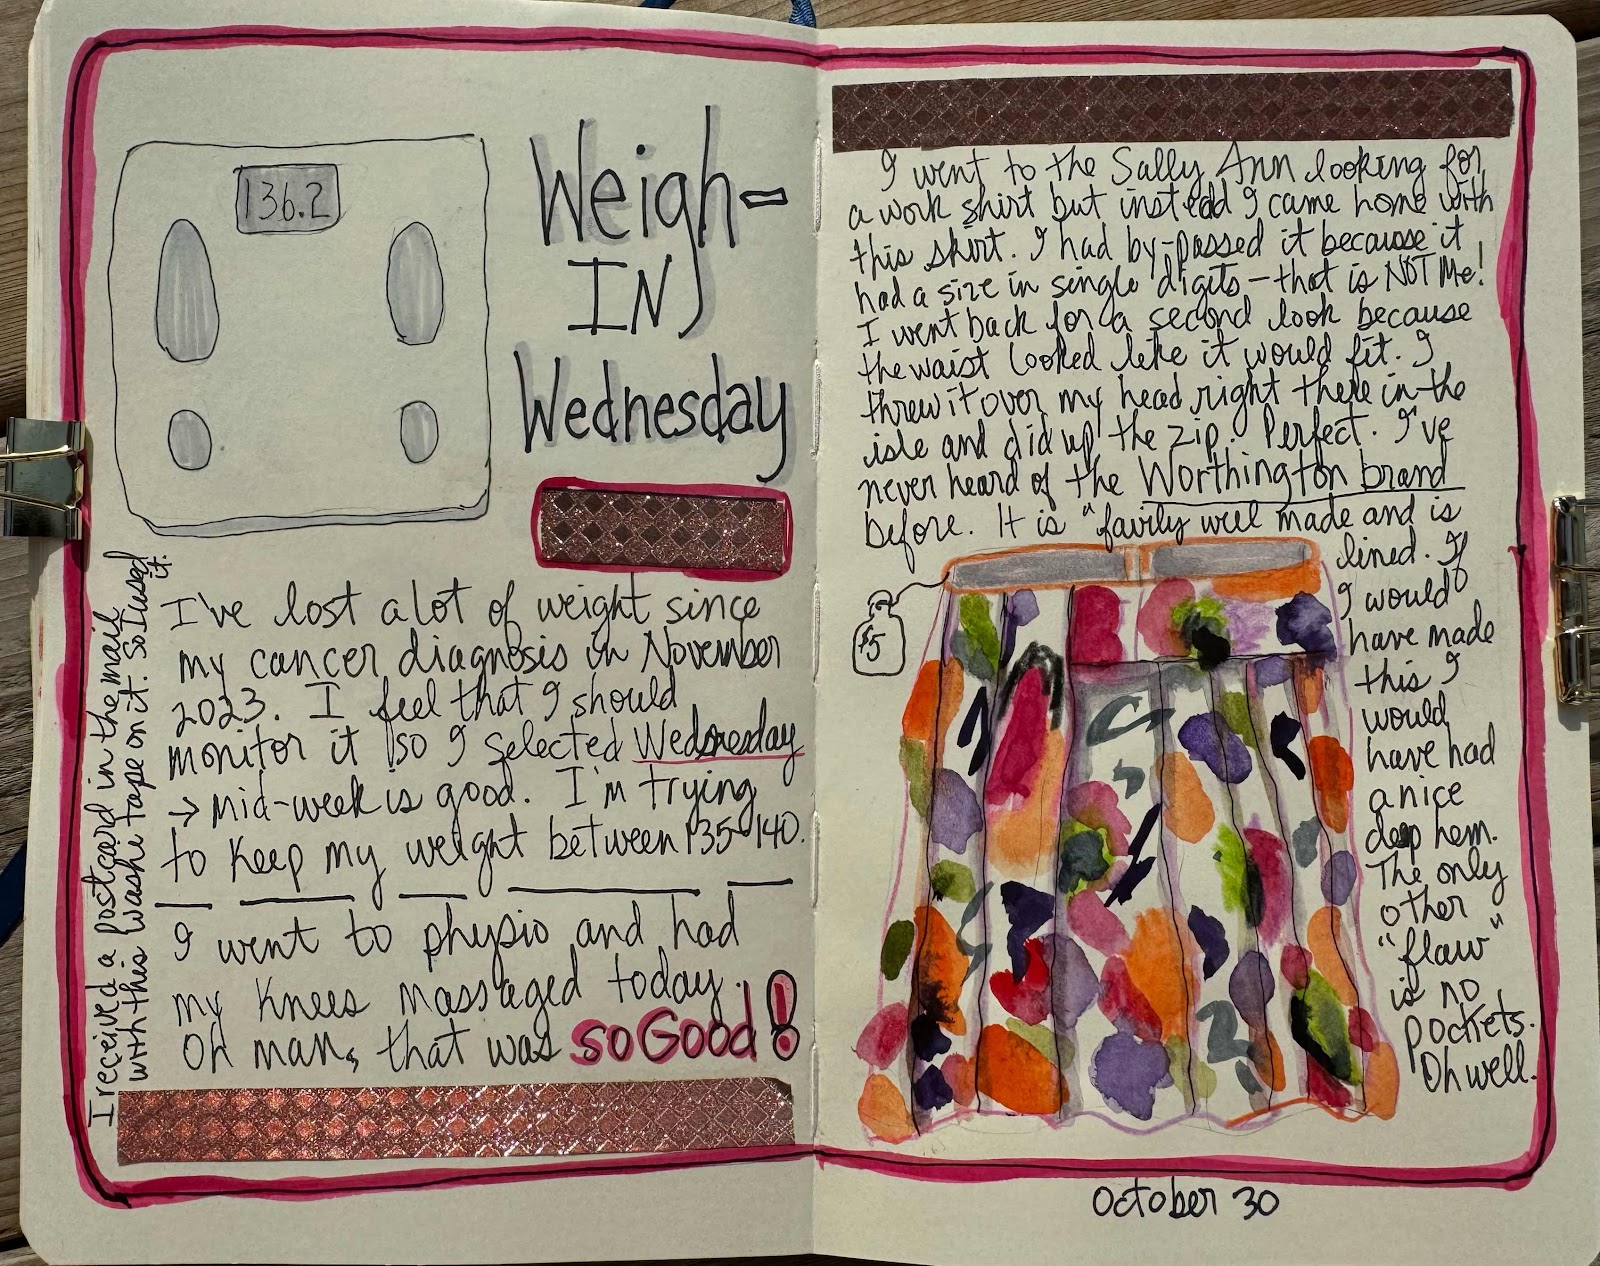 136.2
Weigh-
IN
Wednesday
I've lost a lot of weight since
my cancer diagnosis in November
2023. I feel that I should
monitor it so I selected Wednesday
→ mid-week is good. I'm trying
to keep my weight between 135-140.
I went to physio and had
my knees massaged today.
Oh man, that was so Good!
I received a postcard in the mail
with this washe tape on it. So I used
it.
I went to the Sally Ann looking for
a work shirt but instead I came home with
this skirt. I had by-passed it because it
had a size in single digits - that is NOT Me!
I went back for a second look because
the waist looked like it would fit. I
threw it over my head right there in the
isle and did up the zip. Perfect. I've
never heard of the Worthington brand
before. It is "fairly well made and is
lined. If
I would
have made
this I
would
have had
a nice
deep hem.
The only
other
"flaw"
is no
pockets.
Oh well.
$5
October 30